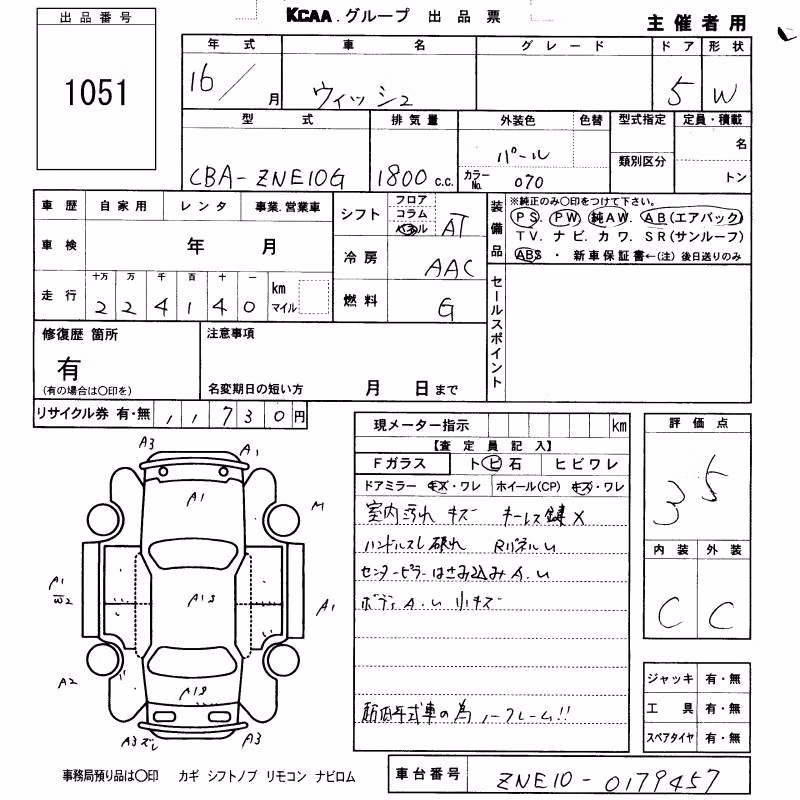 出品番号
1051
KCAA.グループ 出品票
主催者用
年式 車名 グレード ドア 形状
16/月 ウィッシュ 5 W
型式 排気量 外装色 色替 型式指定 定員・積載
CBA-ZNE10G 1800 c.c. パール 類別区分 名
カラーNo. 070 トン
車歴 自家用 レンタ 事業.営業車
シフト フロア コラム パネル AT
装備品
※純正のみ〇印をつけて下さい。
PS. PW. 純AW. AB(エアバック)
TV. ナビ. カワ. SR(サンルーフ)
ABS ・ 新車保証書←(注) 後日送りのみ
車検 年 月
冷房 AAC
走行 十万 万 千 百 十 一
224140 km マイル
燃料 G
セールスポイント
修復歴 箇所
有
(有の場合は〇印を)
注意事項
名変期日の短い方 月 日まで
リサイクル券 有・無 11730円
現メーター指示 km
【査定員記入】
Fガラス トビ石 ヒビワレ
ドアミラー キズ・ワレ ホイール(CP) キズ・ワレ
室内汚れ キズ キーレス鍵X
ハンドルスレ 破れ RパネルU
センターピラーはさみ込みA.U
ボディA.U 小キズ
低年式車の為ノークレーム!!
評価点
3.5
内装 外装
C C
ジャッキ 有・無
工具 有・無
スペアタイヤ 有・無
A3 A1
A1
M
A1
W2
A1S
A1
A2
A1S
A3ズレ A3
事務局預り品は〇印 カギ シフトノブ リモコン ナビロム
車台番号 ZNE10-0179457